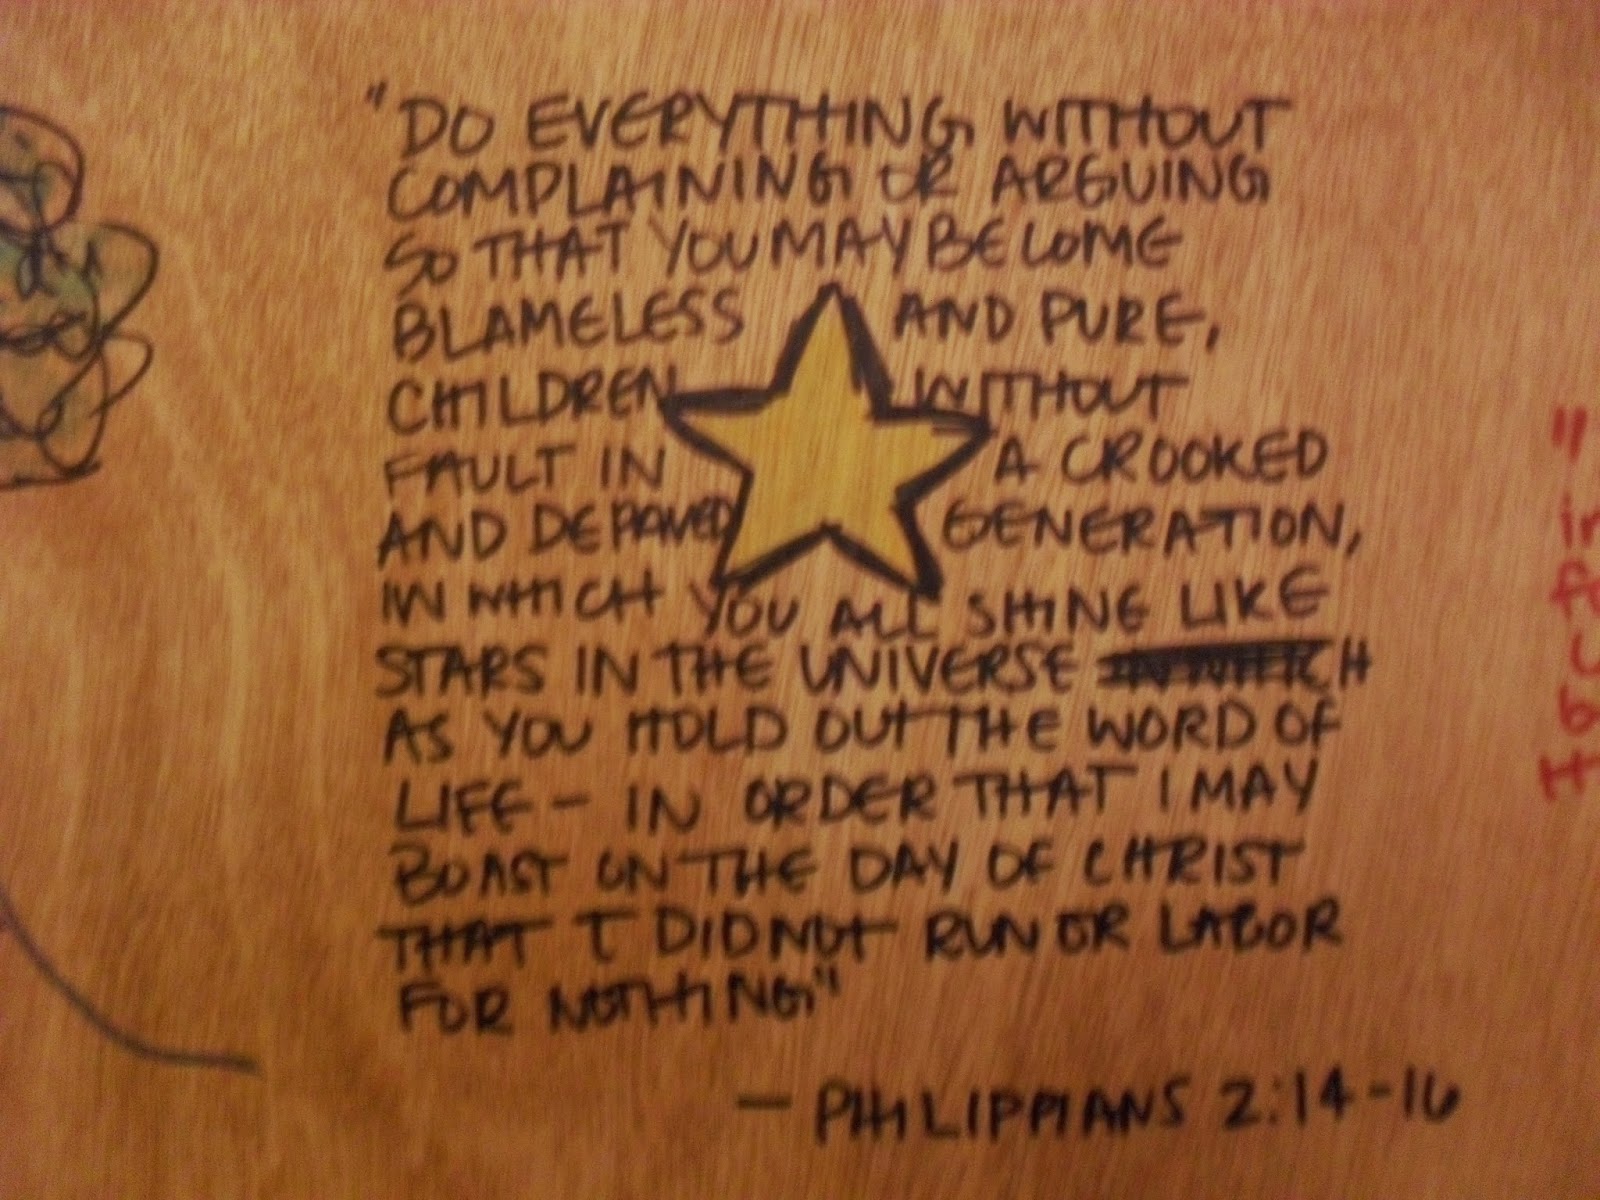 "DO EVERYTHING WITHOUT
COMPLAINING OR ARGUING
SO THAT YOU MAY BECOME
BLAMELESS AND PURE,
CHILDREN WITHOUT
FAULT IN A CROOKED
AND DEPRAVED GENERATION,
IN WHICH YOU ALL SHINE LIKE
STARS IN THE UNIVERSE
AS YOU HOLD OUT THE WORD OF
LIFE - IN ORDER THAT I MAY
BOAST ON THE DAY OF CHRIST
THAT I DID NOT RUN OR LABOR
FOR NOTHING"
- PHILIPPIANS 2:14-16